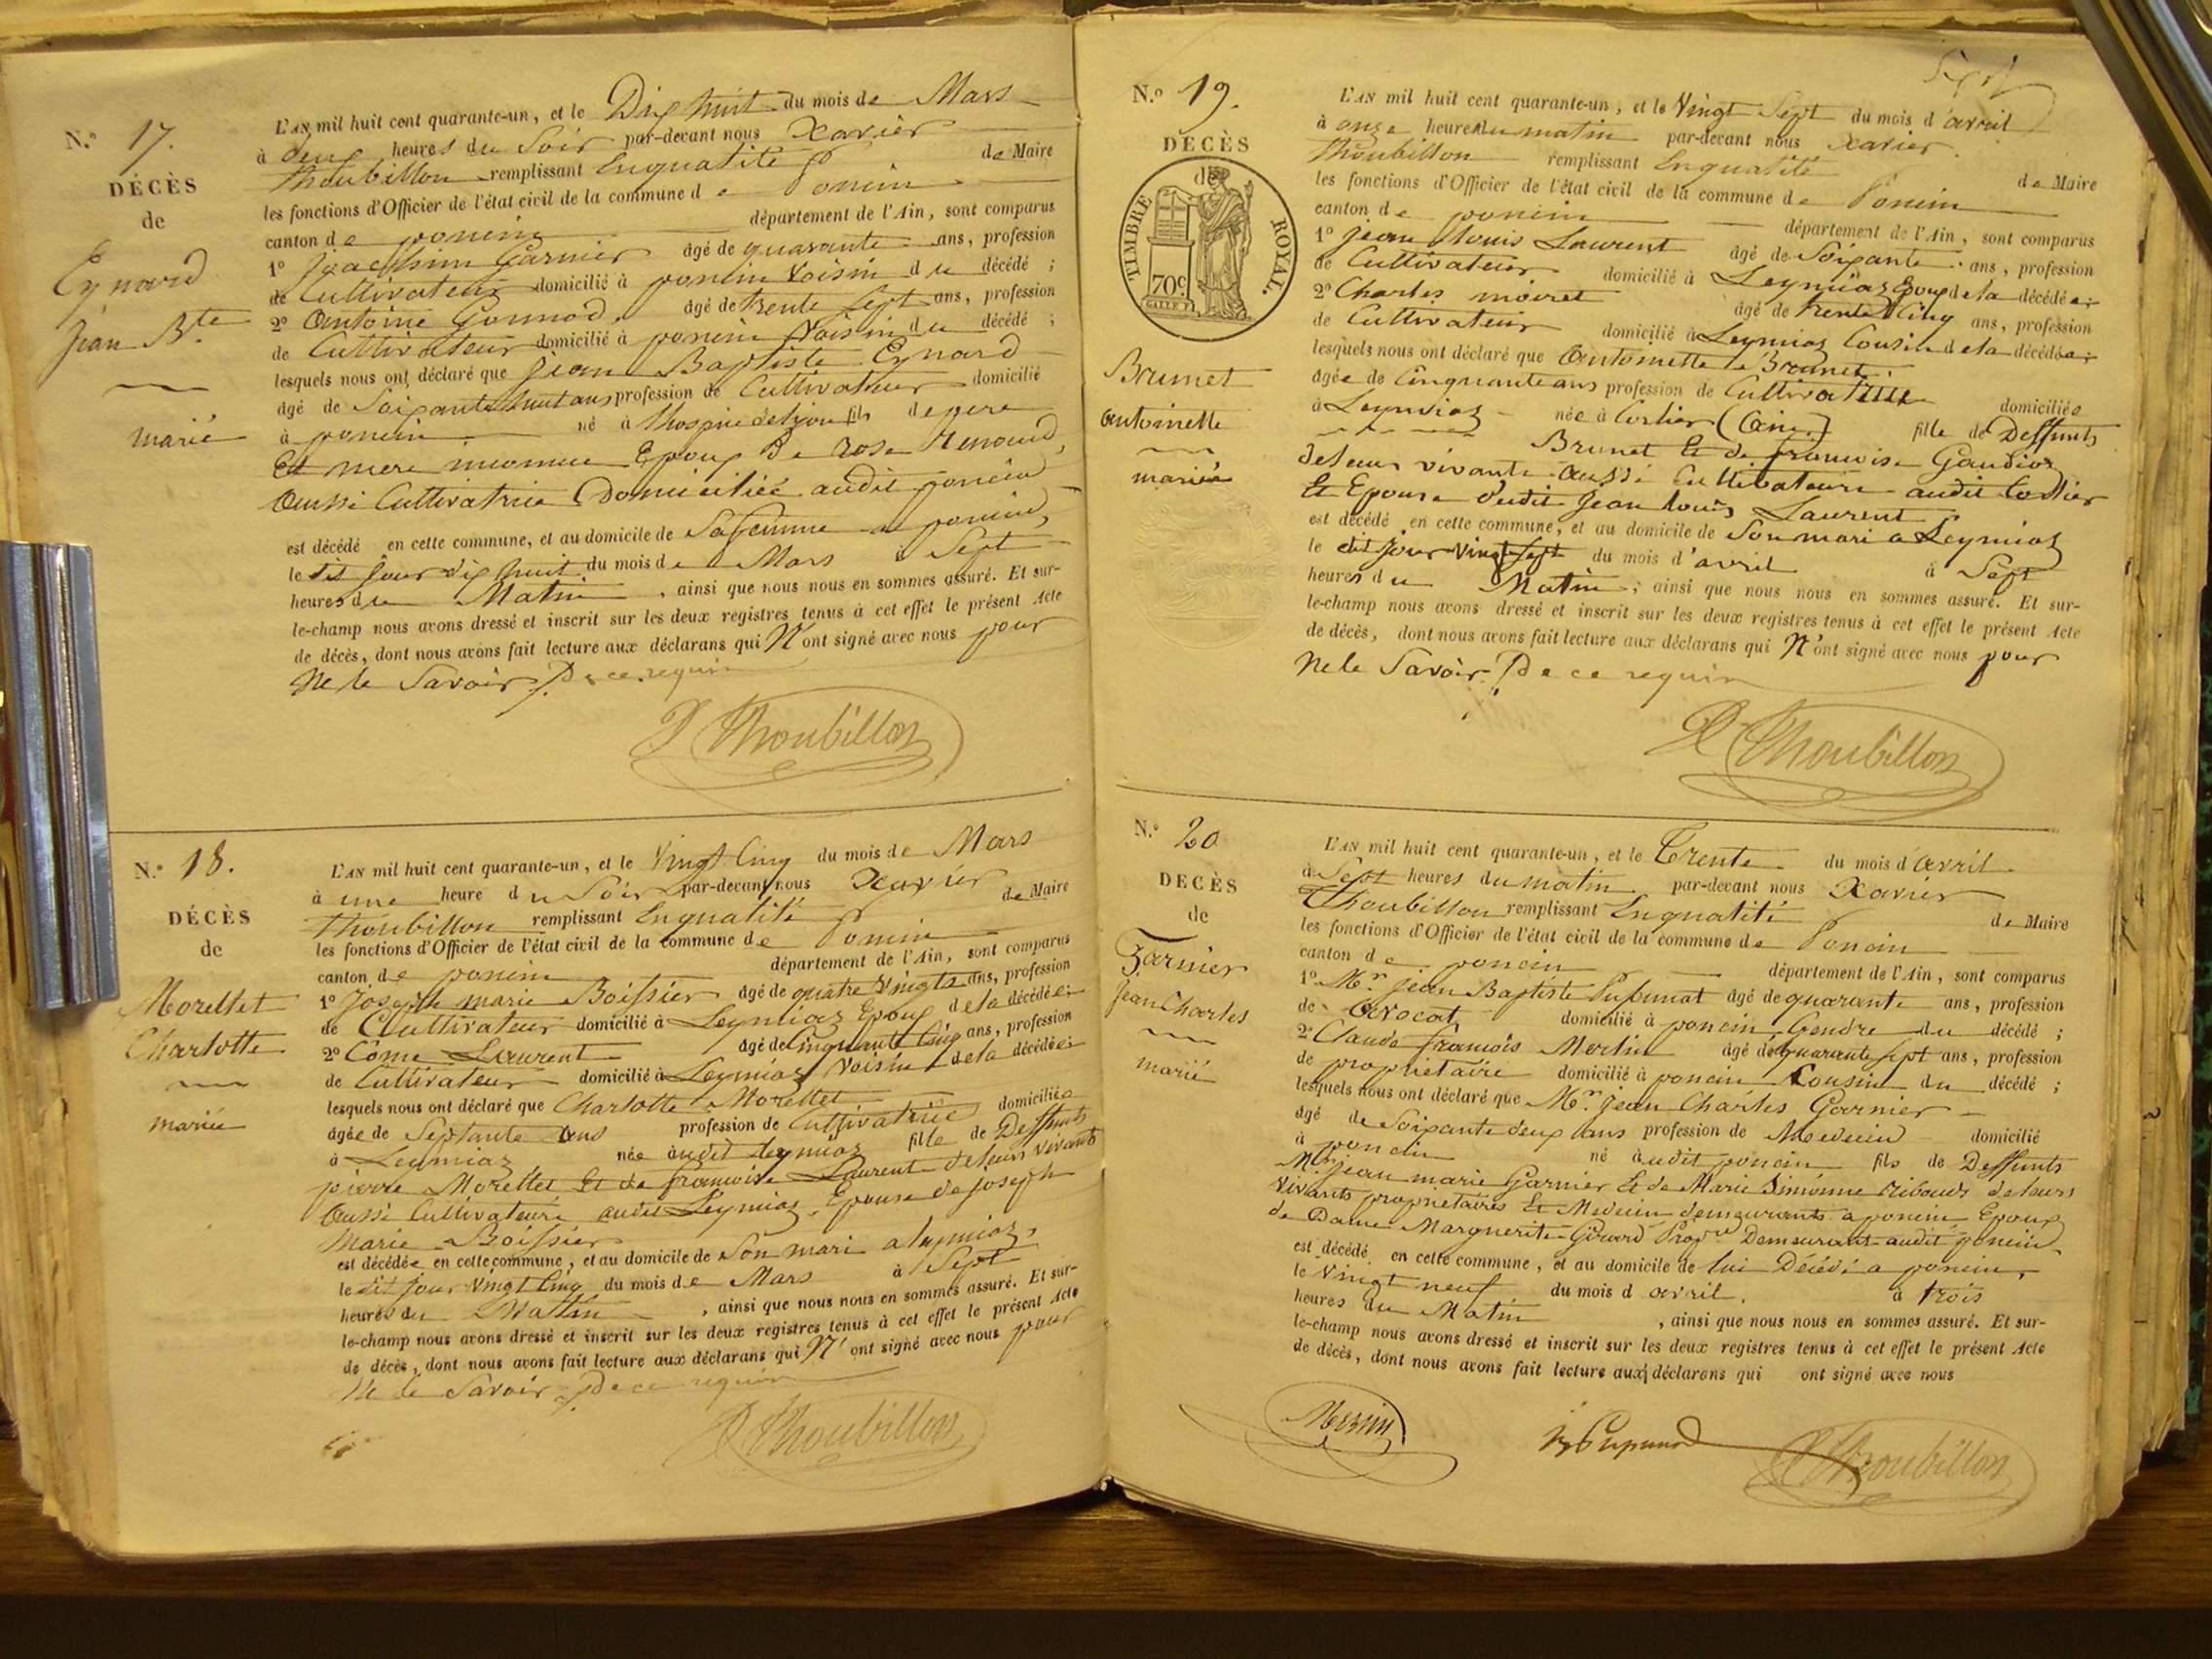 N.º 17.
DÉCÈS
de
Eynard
Jean Bte
marié
L'AN mil huit cent quarante-un, et le Dix huit du mois de Mars
à deux heures du Soir par-devant nous Xavier
Thoubillon remplissant En qualité de Maire
les fonctions d'Officier de l'état civil de la commune de Poncin
canton de poncin département de l'Ain, sont comparus
1º Joachim Garnier âgé de quarante ans, profession
de Cultivateur domicilié à poncin Voisin du décédé ;
2º Antoine Gonnod âgé de trente sept ans, profession
de Cultivateur domicilié à poncin Voisin du décédé ;
lesquels nous ont déclaré que Jean Baptiste Eynard
âgé de Soixante huit ans profession de Cultivateur domicilié
à poncin né à l'hospice de Lyon fils de pere
Et mere inconnue Epoux de rose
Aussi Cultivatrice Domiciliée audit poncin
est décédé en cette commune, et au domicile de Sa femme a poncin,
le dit jour dix huit du mois de Mars à Sept
heures du Matin, ainsi que nous nous en sommes assuré. Et sur-
le-champ nous avons dressé et inscrit sur les deux registres tenus à cet effet le présent Acte
de décès, dont nous avons fait lecture aux déclarans qui N'ont signé avec nous pour
Ne le Savoir De ce requis
X Thoubillon
N.º 18.
DÉCÈS
de
Morellet
Charlotte
mariée
L'AN mil huit cent quarante-un, et le Vingt Cinq du mois de Mars
à une heure du Soir par-devant nous Xavier
Thoubillon remplissant En qualité de Maire
les fonctions d'Officier de l'état civil de la commune de Poncin
canton de poncin département de l'Ain, sont comparus
1º Joseph marie Boissier âgé de quatre Vingts ans, profession
de Cultivateur domicilié à Leymiaz Epoux de la décédée ;
2º Côme Laurent âgé de Cinquante Cinq ans, profession
de Cultivateur domicilié à Leymiaz Voisin de la décédée ;
lesquels nous ont déclaré que Charlotte Morellet
âgée de Septante ans profession de Cultivatrice domiciliée
à Leymiaz née audit Leymiaz fille de Deffunts
pierre Morellet Et de francoise Laurent de leurs vivants
Aussi Cultivateurs audit Leymiaz, Epouse de Joseph
Marie Boissier
est décédée en cette commune, et au domicile de Son mari a Leymiaz,
le dit jour Vingt Cinq du mois de Mars à Sept
heures du Matin, ainsi que nous nous en sommes assuré. Et sur-
le-champ nous avons dressé et inscrit sur les deux registres tenus à cet effet le présent Acte
de décès, dont nous avons fait lecture aux déclarans qui N'ont signé avec nous pour
Ne le Savoir De ce requis
X Thoubillon
N.º 19.
DÉCÈS
de
TIMBRE ROYAL.
70c
Brunet
Antoinette
mariée
L'AN mil huit cent quarante-un, et le Vingt Sept du mois d'avril
à onze heures du matin par-devant nous Xavier
Thoubillon remplissant En qualité de Maire
les fonctions d'Officier de l'état civil de la commune de Poncin
canton de poncin département de l'Ain, sont comparus
1º Jean Louis Laurent âgé de Soixante ans, profession
de Cultivateur domicilié à Leymiaz Epoux de la décédée ;
2º Charles moiret âgé de trente Cinq ans, profession
de Cultivateur domicilié à Leymiaz Cousin de la décédée ;
lesquels nous ont déclaré que Antoinette Brunet
âgée de Cinquante ans profession de Cultivatrice domiciliée
à Leymiaz née à Corlier (Ain) fille de Deffunts
Brunet Et de francoise Gaudioz
de leur vivants aussi Cultivateurs audit Corlier
Et Epouse dudit Jean Louis Laurent
est décédé en cette commune, et au domicile de Son mari a Leymiaz
le dit jour vingt Sept du mois d'avril à Sept
heures du Matin ; ainsi que nous nous en sommes assuré. Et sur-
le-champ nous avons dressé et inscrit sur les deux registres tenus à cet effet le présent Acte
de décès, dont nous avons fait lecture aux déclarans qui N'ont signé avec nous pour
Ne le Savoir De ce requis
X Thoubillon
N.º 20
DÉCÈS
de
Garnier
Jean Charles
marié
L'AN mil huit cent quarante-un, et le Trente du mois d'avril
à Sept heures du matin par-devant nous Xavier
Thoubillon remplissant En qualité de Maire
les fonctions d'Officier de l'état civil de la commune de Poncin
canton de poncin département de l'Ain, sont comparus
1º Mr. Jean Baptiste âgé de quarante ans, profession
de Avocat domicilié à poncin Gendre du décédé ;
2º Claude françois Merlin âgé de quarante sept ans, profession
de propriétaire domicilié à poncin Cousin du décédé ;
lesquels nous ont déclaré que Mr. Jean Charles Garnier
âgé de Soixante deux ans profession de Medecin domicilié
à poncin né audit poncin fils de Deffunts
Mr. Jean marie Garnier Et de Marie Simonne Ribouds de leurs
vivants propriétaires Et Medecin demeurants a poncin Epoux
de Dame Marguerite Girard Propre Demeurant audit poncin
est décédé en cette commune, et au domicile de lui Décédé a poncin,
le Vingt neuf du mois d'avril, à trois
heures du Matin, ainsi que nous nous en sommes assuré. Et sur-
le-champ nous avons dressé et inscrit sur les deux registres tenus à cet effet le présent Acte
de décès, dont nous avons fait lecture aux déclarans qui ont signé avec nous
Merlin
X Thoubillon